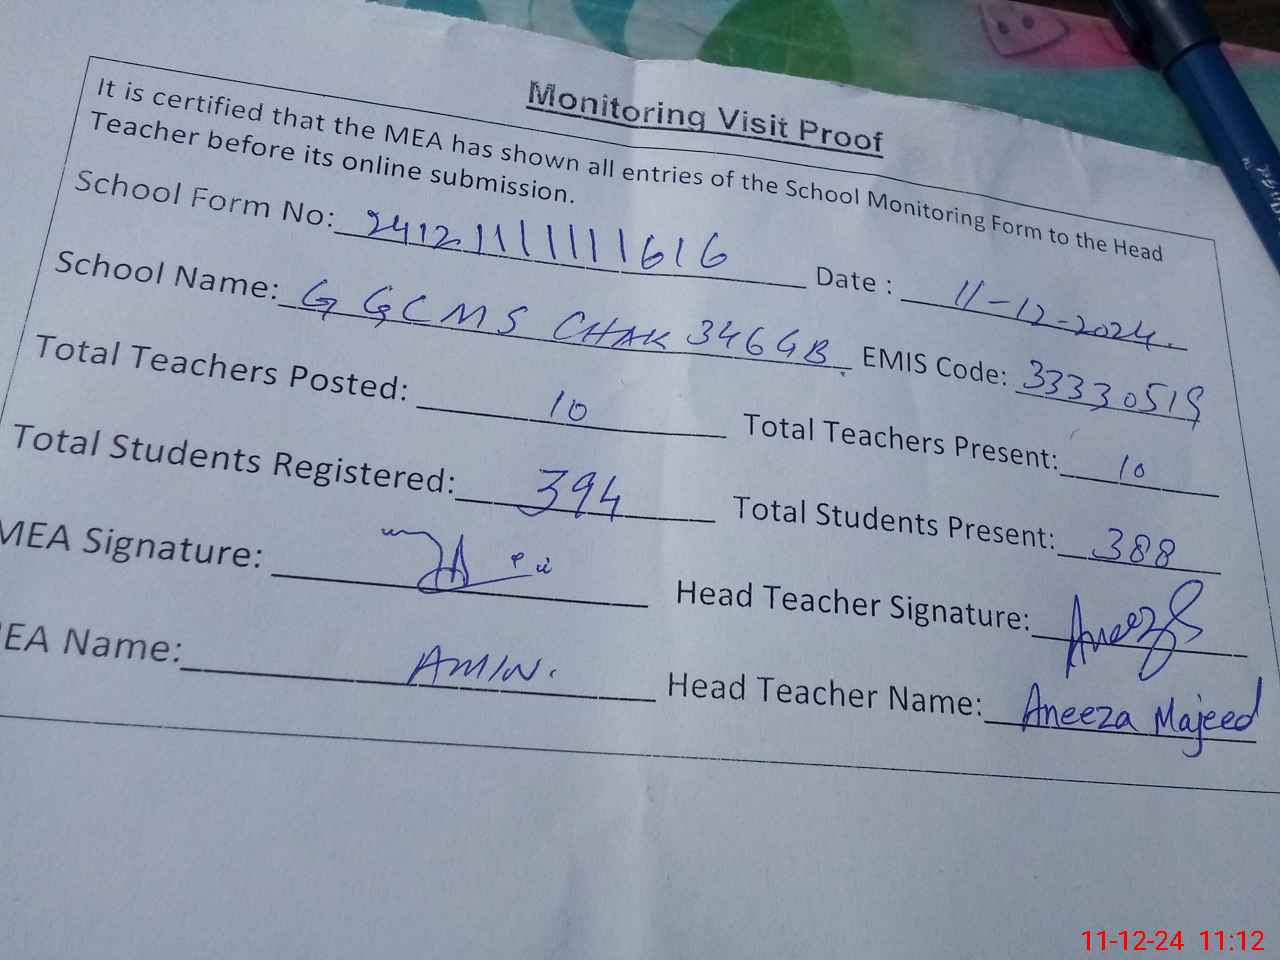 Monitoring Visit Proof
It is certified that the MEA has shown all entries of the School Monitoring Form to the Head
Teacher before its online submission.
School Form No: 241211111111616 Date : 11-12-2024.
School Name: GGCMS CHAK 346GB. EMIS Code: 33330519
Total Teachers Posted: 10 Total Teachers Present: 10
Total Students Registered: 394 Total Students Present: 388
MEA Signature: Head Teacher Signature: Aneeza
EA Name: AMIN. Head Teacher Name: Aneeza Majeed
11-12-24 11:12